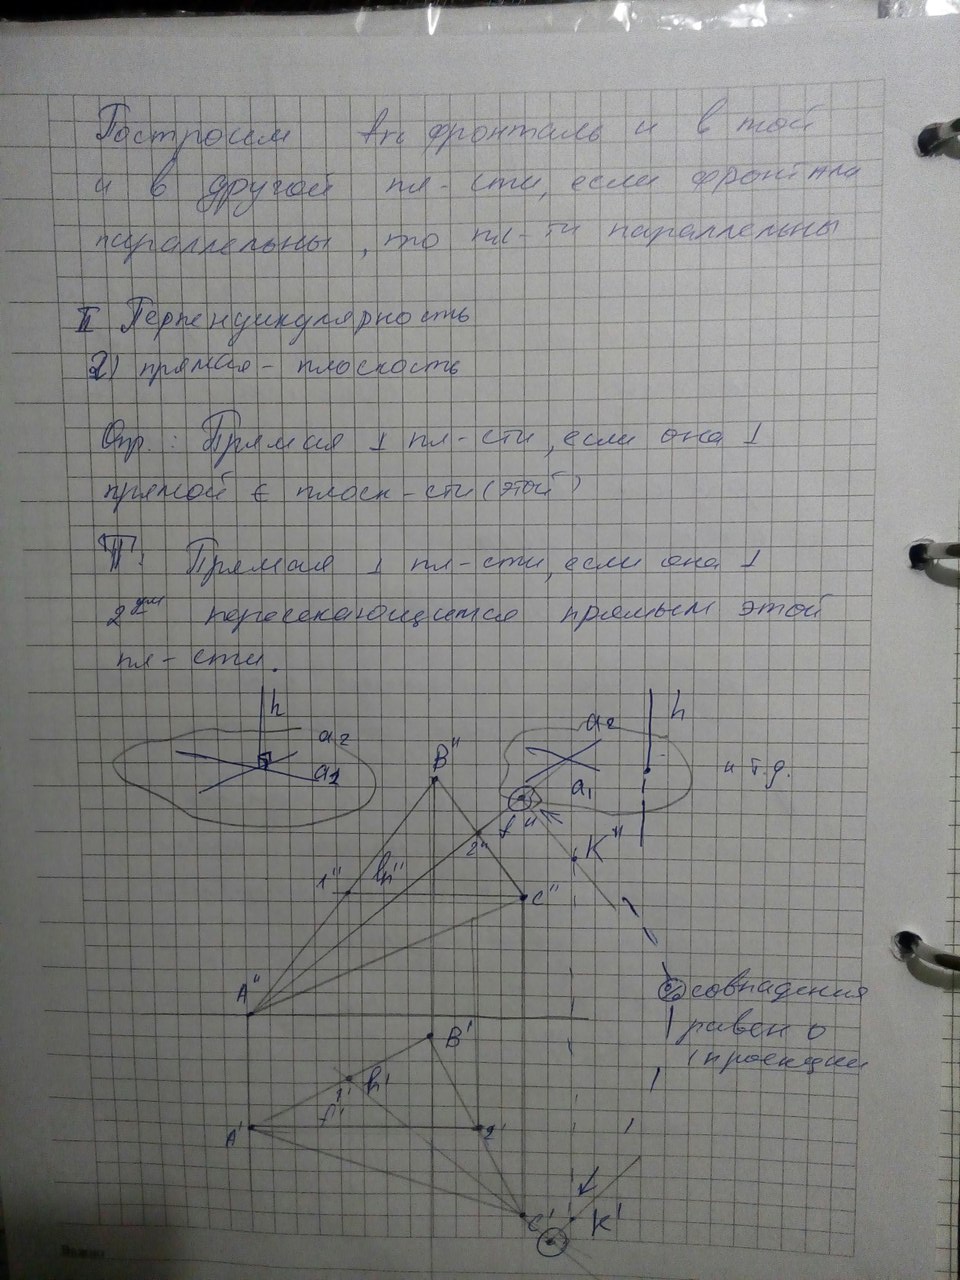 Построим hn фронталь и в той
и в другой пл-сти, если фронтали
параллельны, то пл-ти параллельны
II Перпендикулярность
2) прямая - плоскость
Опр.: Прямая ⊥ пл-сти, если она ⊥
прямой ∈ плоск-сти (этой)
П: Прямая ⊥ пл-сти, если она ⊥
2ум пересекающимся прямым этой
пл-сти.
h
a2
a1
h
a2
a1
и т.д.
B"
f"
2"
K"
1"
h"
C"
A"
% совпадения
равен 0
проекции
B'
1'
h'
f'
A'
2'
C'
K'